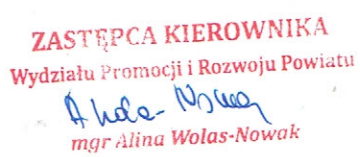 ZASTĘPCA KIEROWNIKA
Wydziału Promocji i Rozwoju Powiatu
mgr Alina Wolas-Nowak